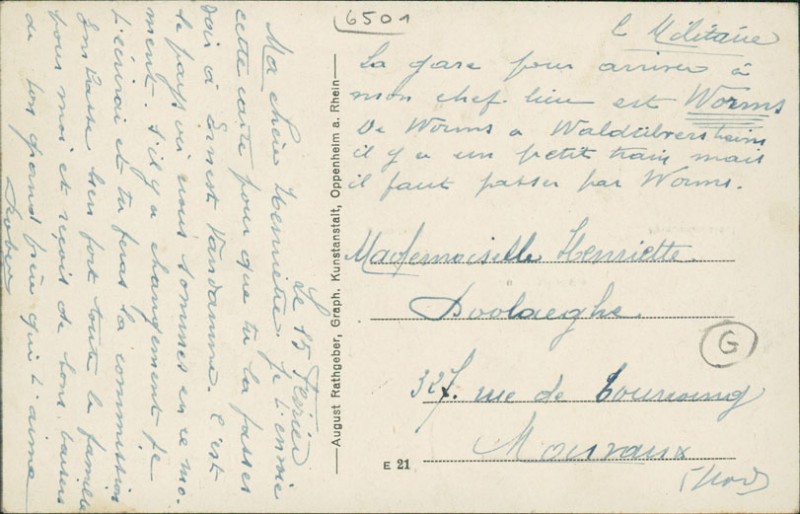 6501
Le 15 Février
Ma chère Henriette je t'envie
cette carte pour que tu la fasses
voir à Ernest Vandamme. C'est
le pays où nous sommes en ce mo-
ment. S'il y a changement je
t'écrirai et tu feras la commission
Embrasse bien fort toute la famille
pour moi et reçois de bons baisers
de ton grand frère qui t'aime
Robert
August Rathgeber, Graph. Kunstanstalt, Oppenheim a. Rhein
E 21
C. Militaire
La gare pour arriver à
mon chef. lieu est Worms
De Worms a Waldülversheim
il y a un petit train mais
il faut passer par Worms.
Mademoiselle Henriette
Doolaeghe
327. rue de Tourcoing
Mouvaux
(Nord)
G